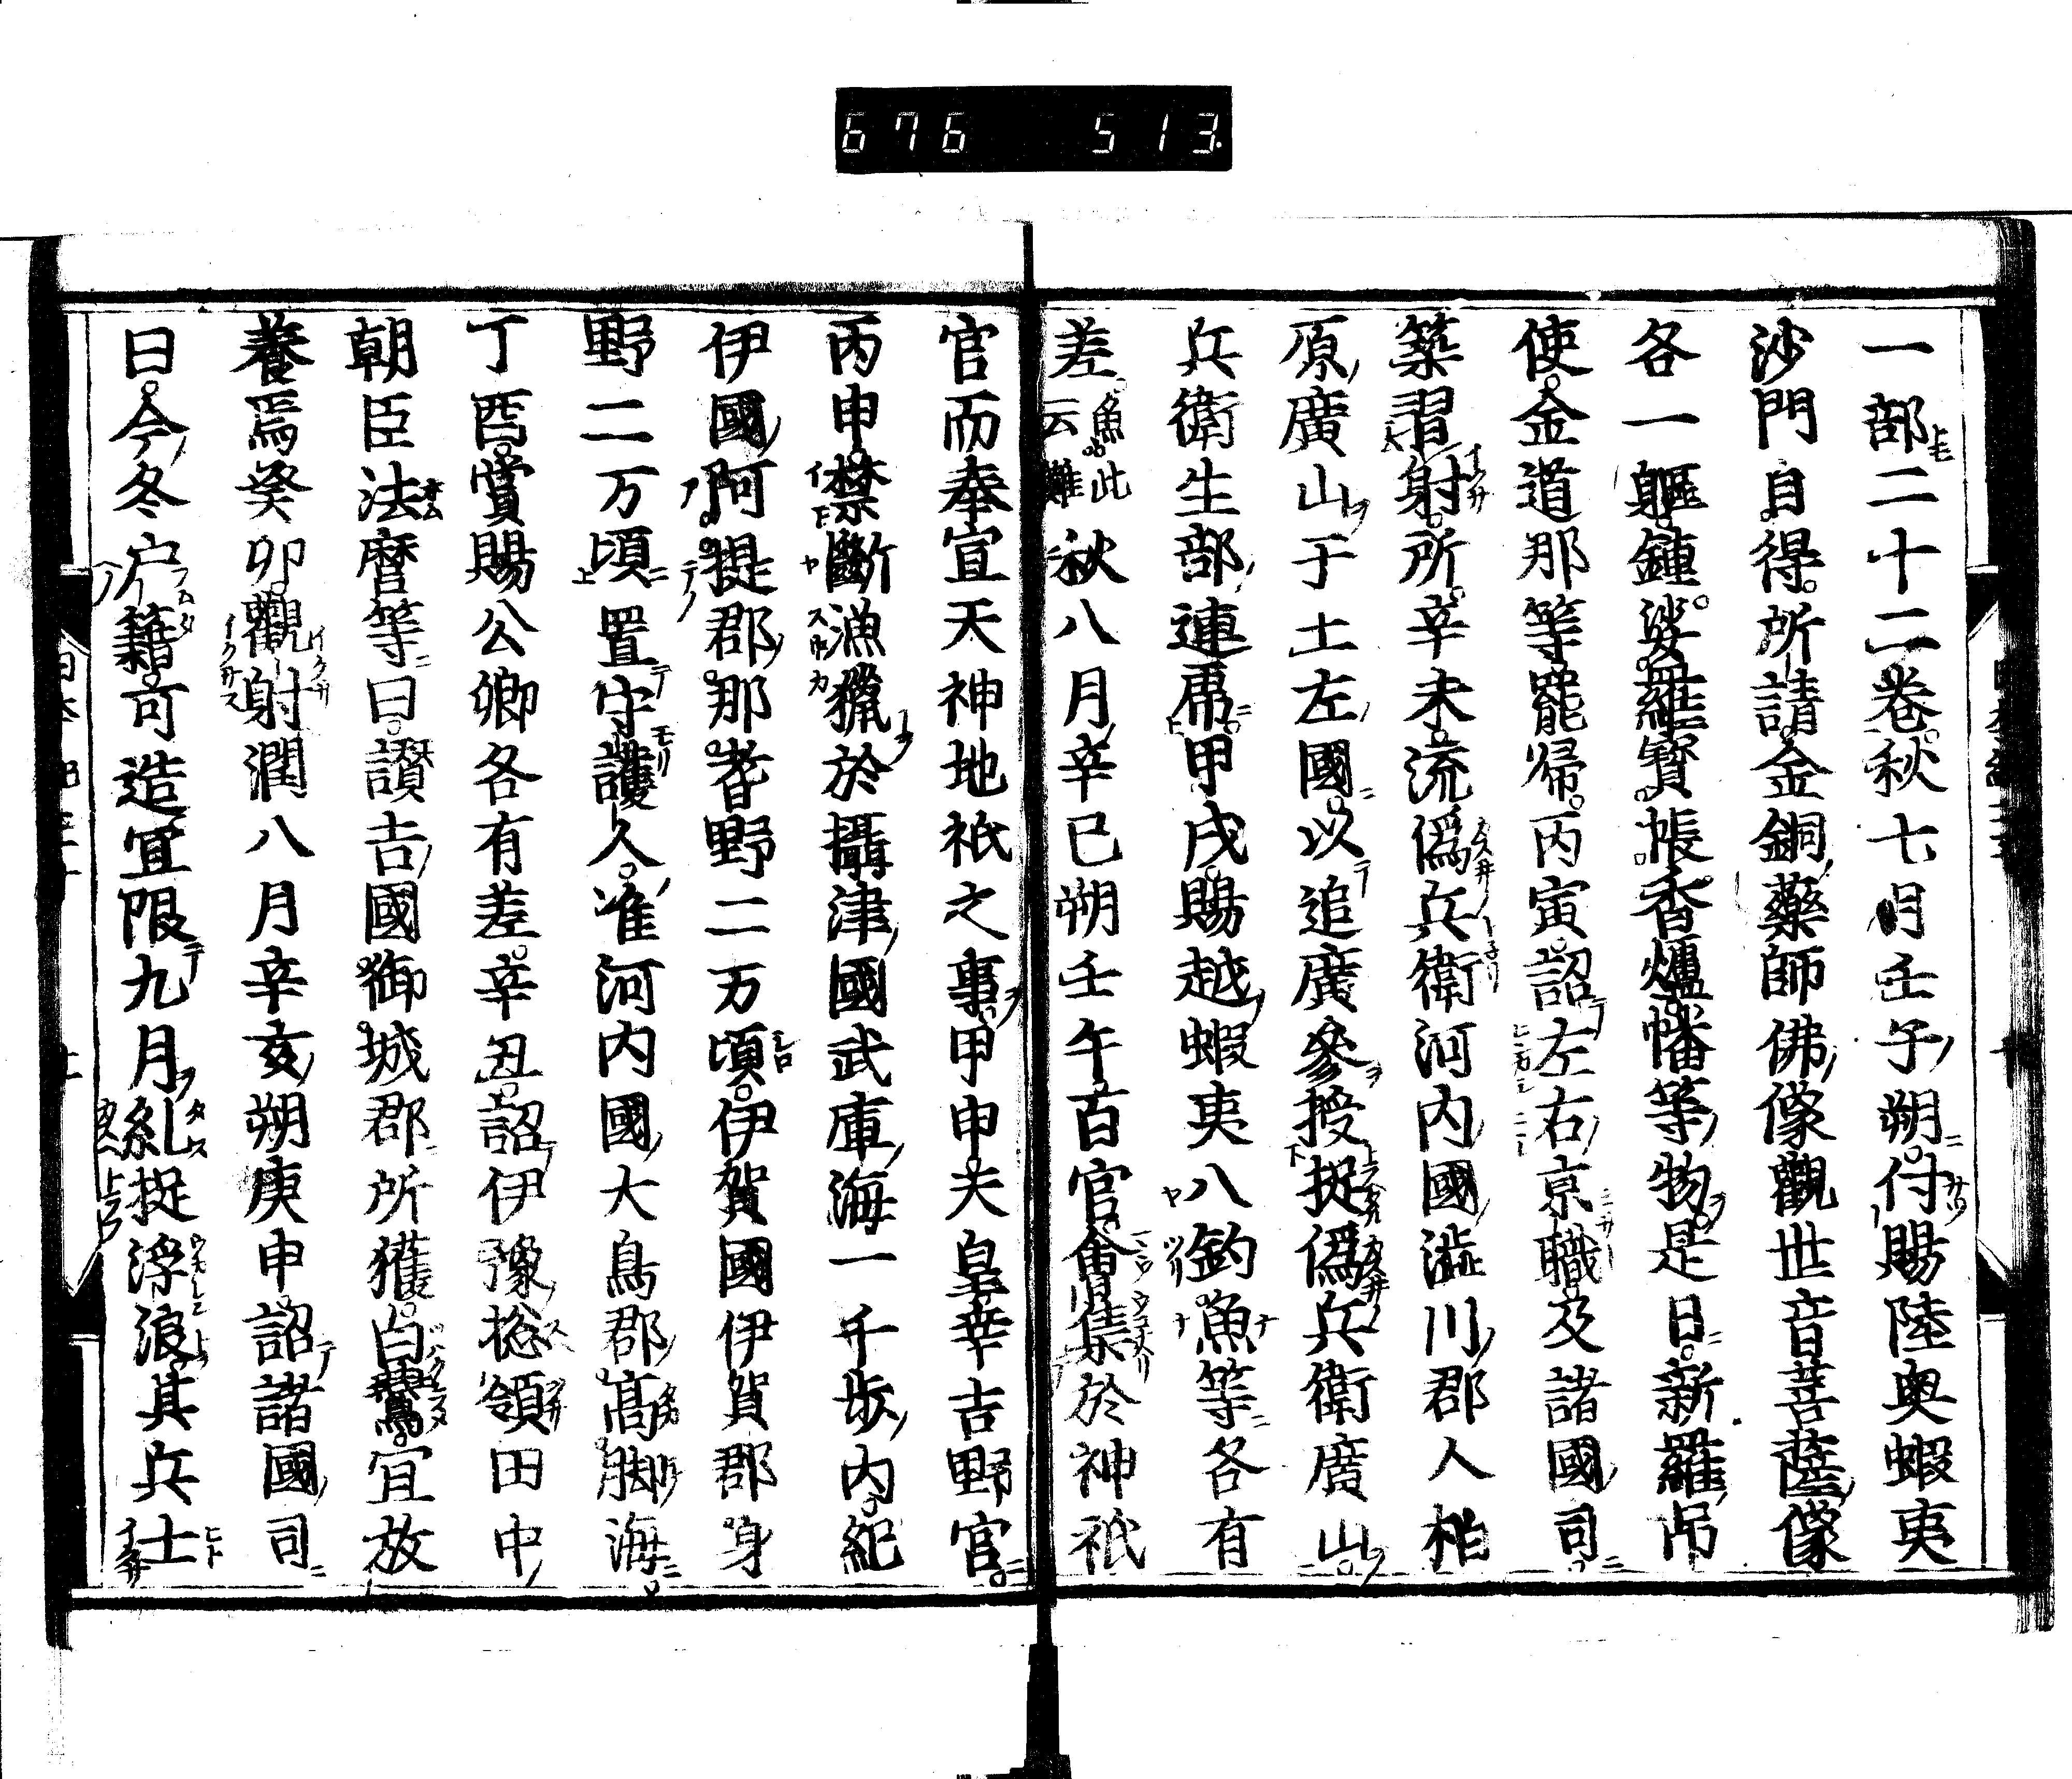 676 513
一部二十二巻秋七月壬子朔付賜陸奥蝦夷
沙門自得所請金銅藥師佛像觀世音菩薩像
各一軀鍾娑羅寳帳香爐幡等物是日新羅吊
使金道那等罷帰丙寅詔左右京職及諸國司
築習射所辛未流僞兵衛河内國澁川郡人柏
原廣山于土左國以追廣參授捉僞兵衛廣山
兵衛生部連乕甲戌賜越蝦夷八釣魚等各有
差魚此云儺秋八月辛巳朔壬午百官會集於神祇
官而奉宣天神地祇之事甲申天皇幸吉野宮
丙申禁斷漁獵於攝津國武庫海一千歩内紀
伊國阿提郡那耆野二万頃伊賀國伊賀郡身
野二万頃置守護人准河内國大鳥郡髙脚海
丁酉賞賜公卿各有差辛丑詔伊豫捴領田中
朝臣法麿等曰讃吉國御城郡所獲白䴏宜放
養焉癸卯觀射潤八月辛亥朔庚申詔諸國司
曰今冬户籍可造宜限九月糺捉浮浪其兵士